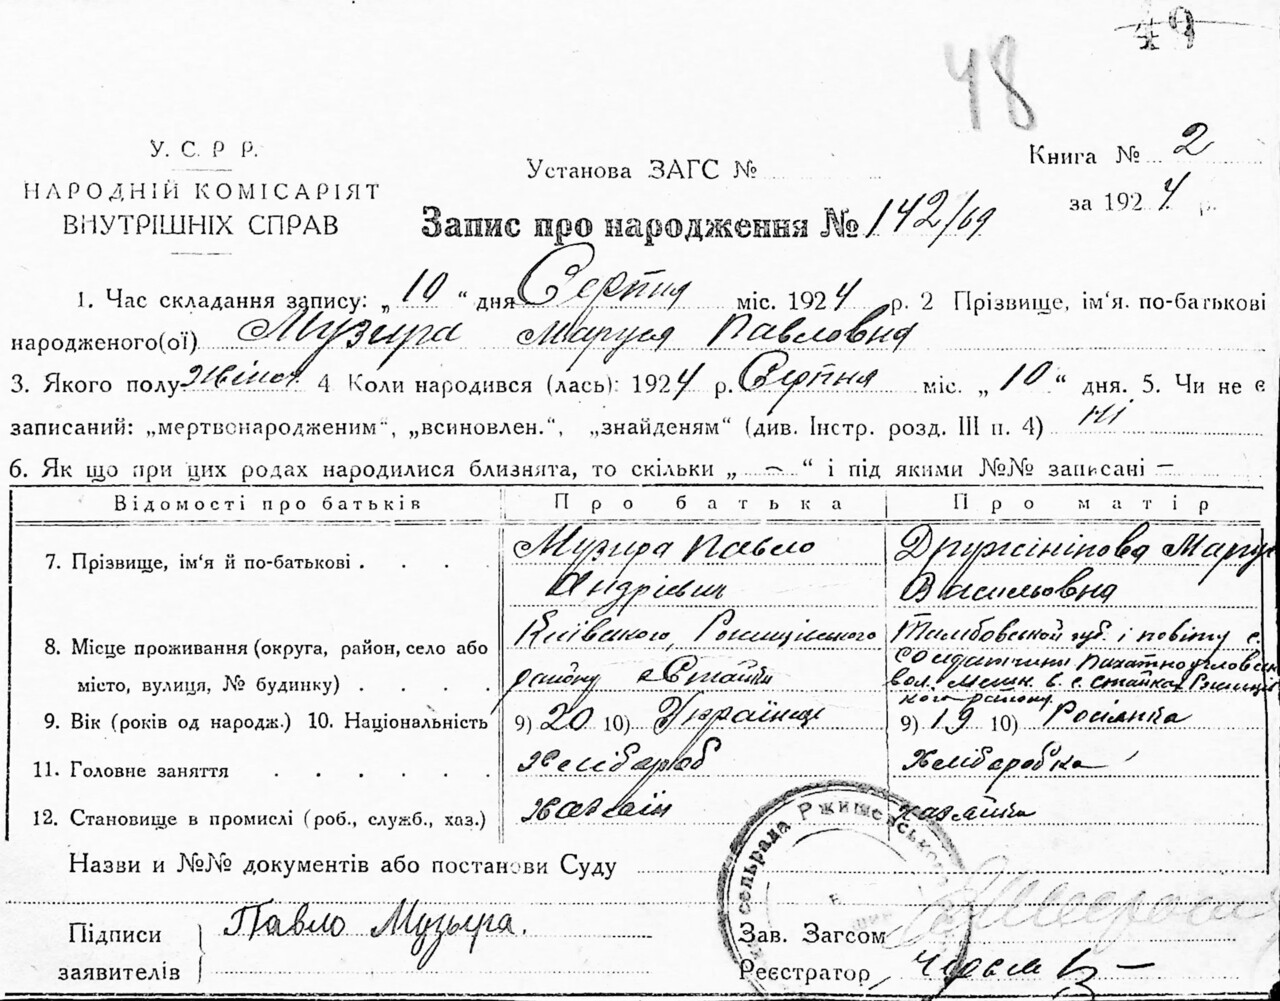 49
48
У. С. Р Р.
НАРОДНІЙ КОМІСАРІЯТ
ВНУТРІШНІХ СПРАВ
Установа ЗАГС №
Книга № 2
за 1924 р.
Запис про народження № 142/69
1. Час складання запису: „10“ дня Серпня міс. 1924 р. 2 Прізвище, ім‘я. по-батькові
народженого(ої) Музира Маруся Павловна
3. Якого полу жіноч. 4 Коли народився (лась): 1924 р. Серпня міс. „10“ дня. 5. Чи не є
записаний: „мертвонародженим“, „всиновлен.“, „знайденям“ (див. Інстр. розд. III п. 4) ні
6. Як що при цих родах народилися близнята, то скільки „ — “ і під якими №№ записані —
Відомості про батьків Про батька Про матір
7. Прізвище, ім‘я й по-батькові . . . . Музира Павло Дружинінова Маруся
Андрієвич Василь овна
8. Місце проживання (округа, район, село або Київского, Ржищівського Тамбовской губ. і повіту с.
місто, вулиця, № будинку) . . . . району с Стайки
вол. мешк. в с. Стайках Ржищів
кого району
9. Вік (років од народж.) 10. Національність 9) 20 10) Українец 9) 19 10) Росіянка
11. Головне заняття . . . . . . Хліб ороб Хліборобка
12. Становище в промислі (роб., служб., хаз.) хазаїн хазяйка
Назви и №№ документів або постанови Суду
сельрада Ржищевського
Підписи
заявителів
Павло Музыра.
Зав. Загсом
Реєстратор